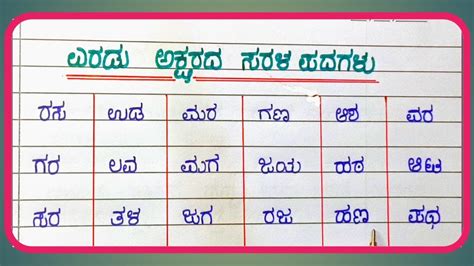 ಎರಡು ಅಕ್ಷರದ ಸರಳ ಪದಗಳು
ರಸು ಉಡ ಮರ ಗಣ ಆಶ ವರ
ಗರ ಲವ ಮಗ ಜಯ ಹಠ ಆಟ
ಸರ ತಳ ರಜ ಹಣ ಪಥ